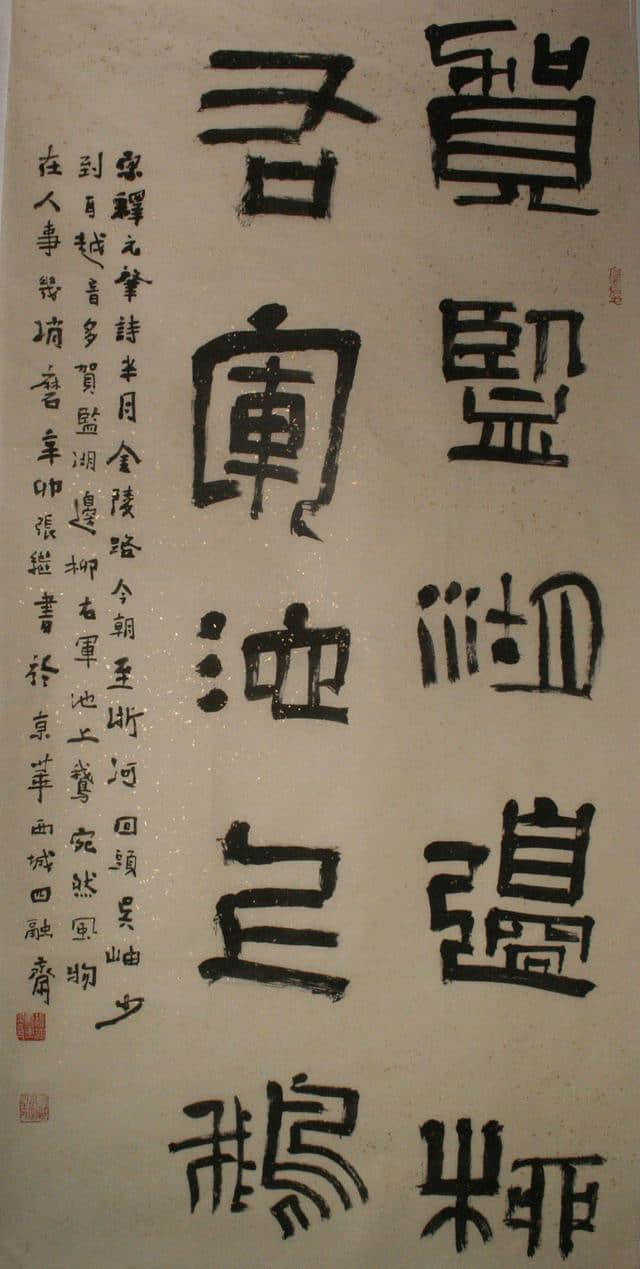 賀監湖邊柳
右軍池上鵝
宋釋元肇詩半月金陵路今朝至浙河回頭吳岫少
到耳越音多賀監湖邊柳右軍池上鵝宛然風物
在人事幾消磨辛卯張繼書於京華西城四融齋